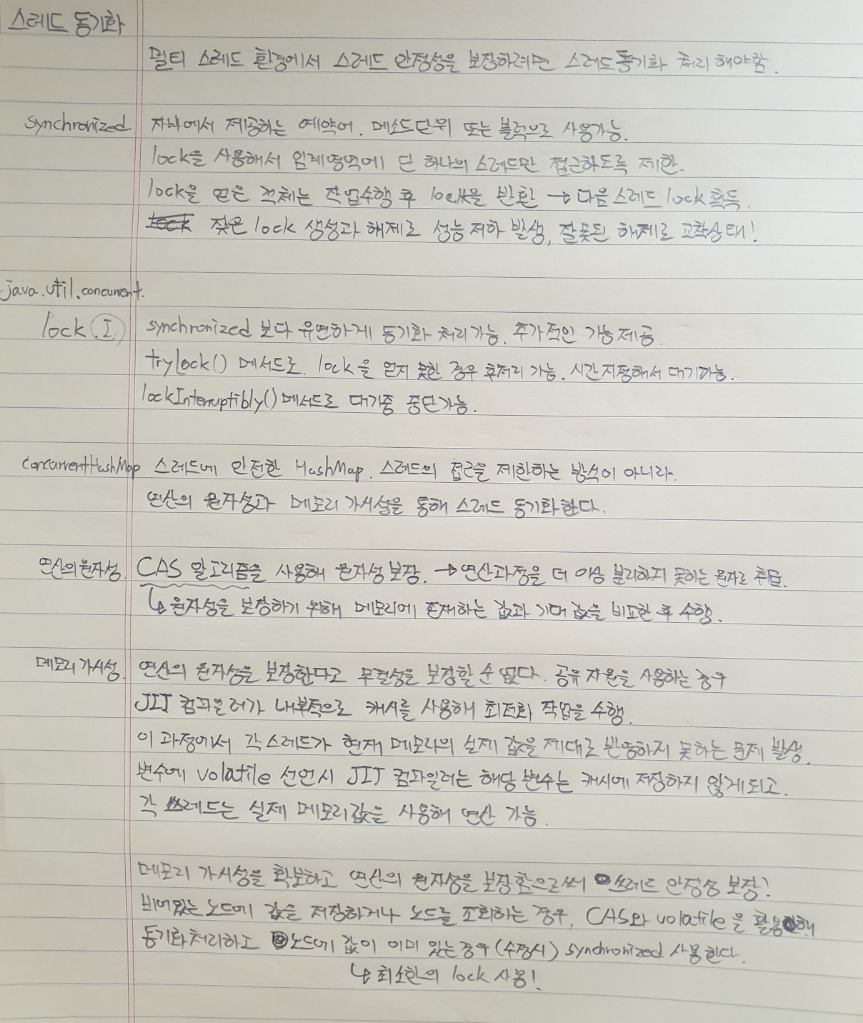 스레드 동기화
멀티 스레드 환경에서 스레드 안정성을 보장하려면 스레드 동기화 처리 해야함.
synchronized 자바에서 제공하는 예약어. 메소드단위 또는 블럭으로 사용가능.
lock을 사용해서 임계영역에 단 하나의 스레드만 접근하도록 제한.
lock을 얻은 객체는 작업수행 후 lock을 반환 → 다음 스레드 lock 획득.
잦은 lock 생성과 해제로 성능 저하 발생, 잘못된 해제로 교착상태!
java.util.concurrent.
lock (I) synchronized 보다 유연하게 동기화 처리가능. 추가적인 기능제공
tryLock() 메서드로 lock을 얻지 못한 경우 후처리 가능. 시간지정해서 대기가능.
lockInterruptibly() 메서드로 대기중 중단가능.
ConcurrentHashMap 스레드에 안전한 HashMap. 스레드의 접근을 제한하는 방식이 아니라.
연산의 원자성과 메모리 가시성을 통해 스레드 동기화한다.
연산의 원자성. CAS 알고리즘을 사용해 원자성 보장. → 연산과정을 더 이상 분리하지 못하는 원자로 취급.
↳ 원자성을 보장하기 위해 메모리에 존재하는 값과 기대 값을 비교한 후 수행.
메모리 가시성. 연산의 원자성을 보장한다고 무결성을 보장할 순 없다. 공유 자원을 사용하는 경우
JIT 컴파일러가 내부적으로 캐시를 사용해 최적화 작업을 수행.
이 과정에서 각 스레드가 현재 메모리의 실제 값을 제대로 반영하지 못하는 문제 발생.
변수에 volatile 선언시 JIT 컴파일러는 해당 변수는 캐시에 저장하지 않게되고.
각 스레드는 실제 메모리값을 사용해 연산 가능.
메모리 가시성을 확보하고 연산의 원자성을 보장함으로써 스레드 안정성 보장!
비어있는 노드에 값을 저장하거나 노드를 조회하는 경우, CAS와 volatile을 활용해
동기화처리하고 노드에 값이 이미 있는경우(수정시) synchronized 사용한다.
↳ 최소한의 lock 사용!